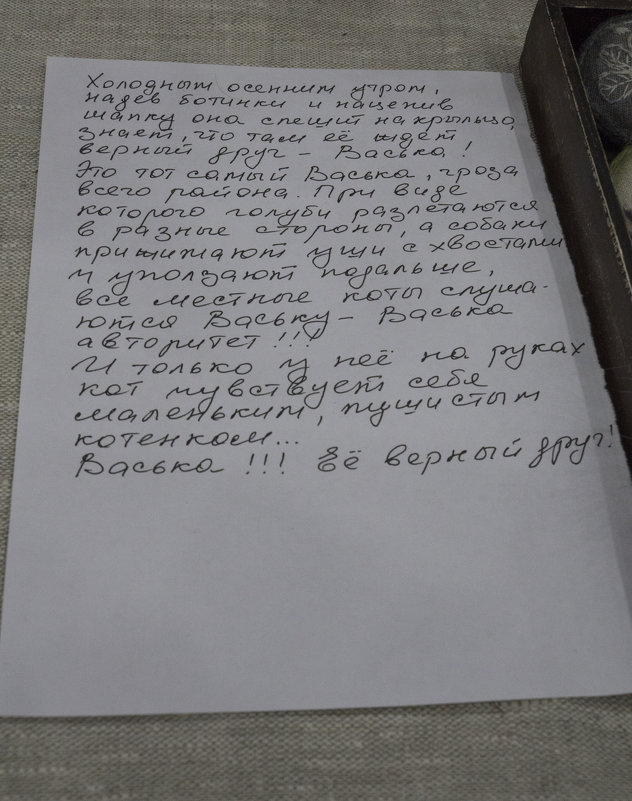 Холодным осенним утром,
надев ботинки и нацепив
шапку она спешит на крыльцо,
знает, что там её ждет
верный друг - Васька!
Это тот самый Васька, гроза
всего района. При виде
которого голуби разлетаются
в разные стороны, а собаки
прижимают уши с хвостами
и уползают подальше,
все местные коты слуша-
ются Ваську - Васька
авторитет!!!
И только у неё на руках
кот чувствует себя
маленьким, пушистым
котенком...
Васька!!! Её верный друг!